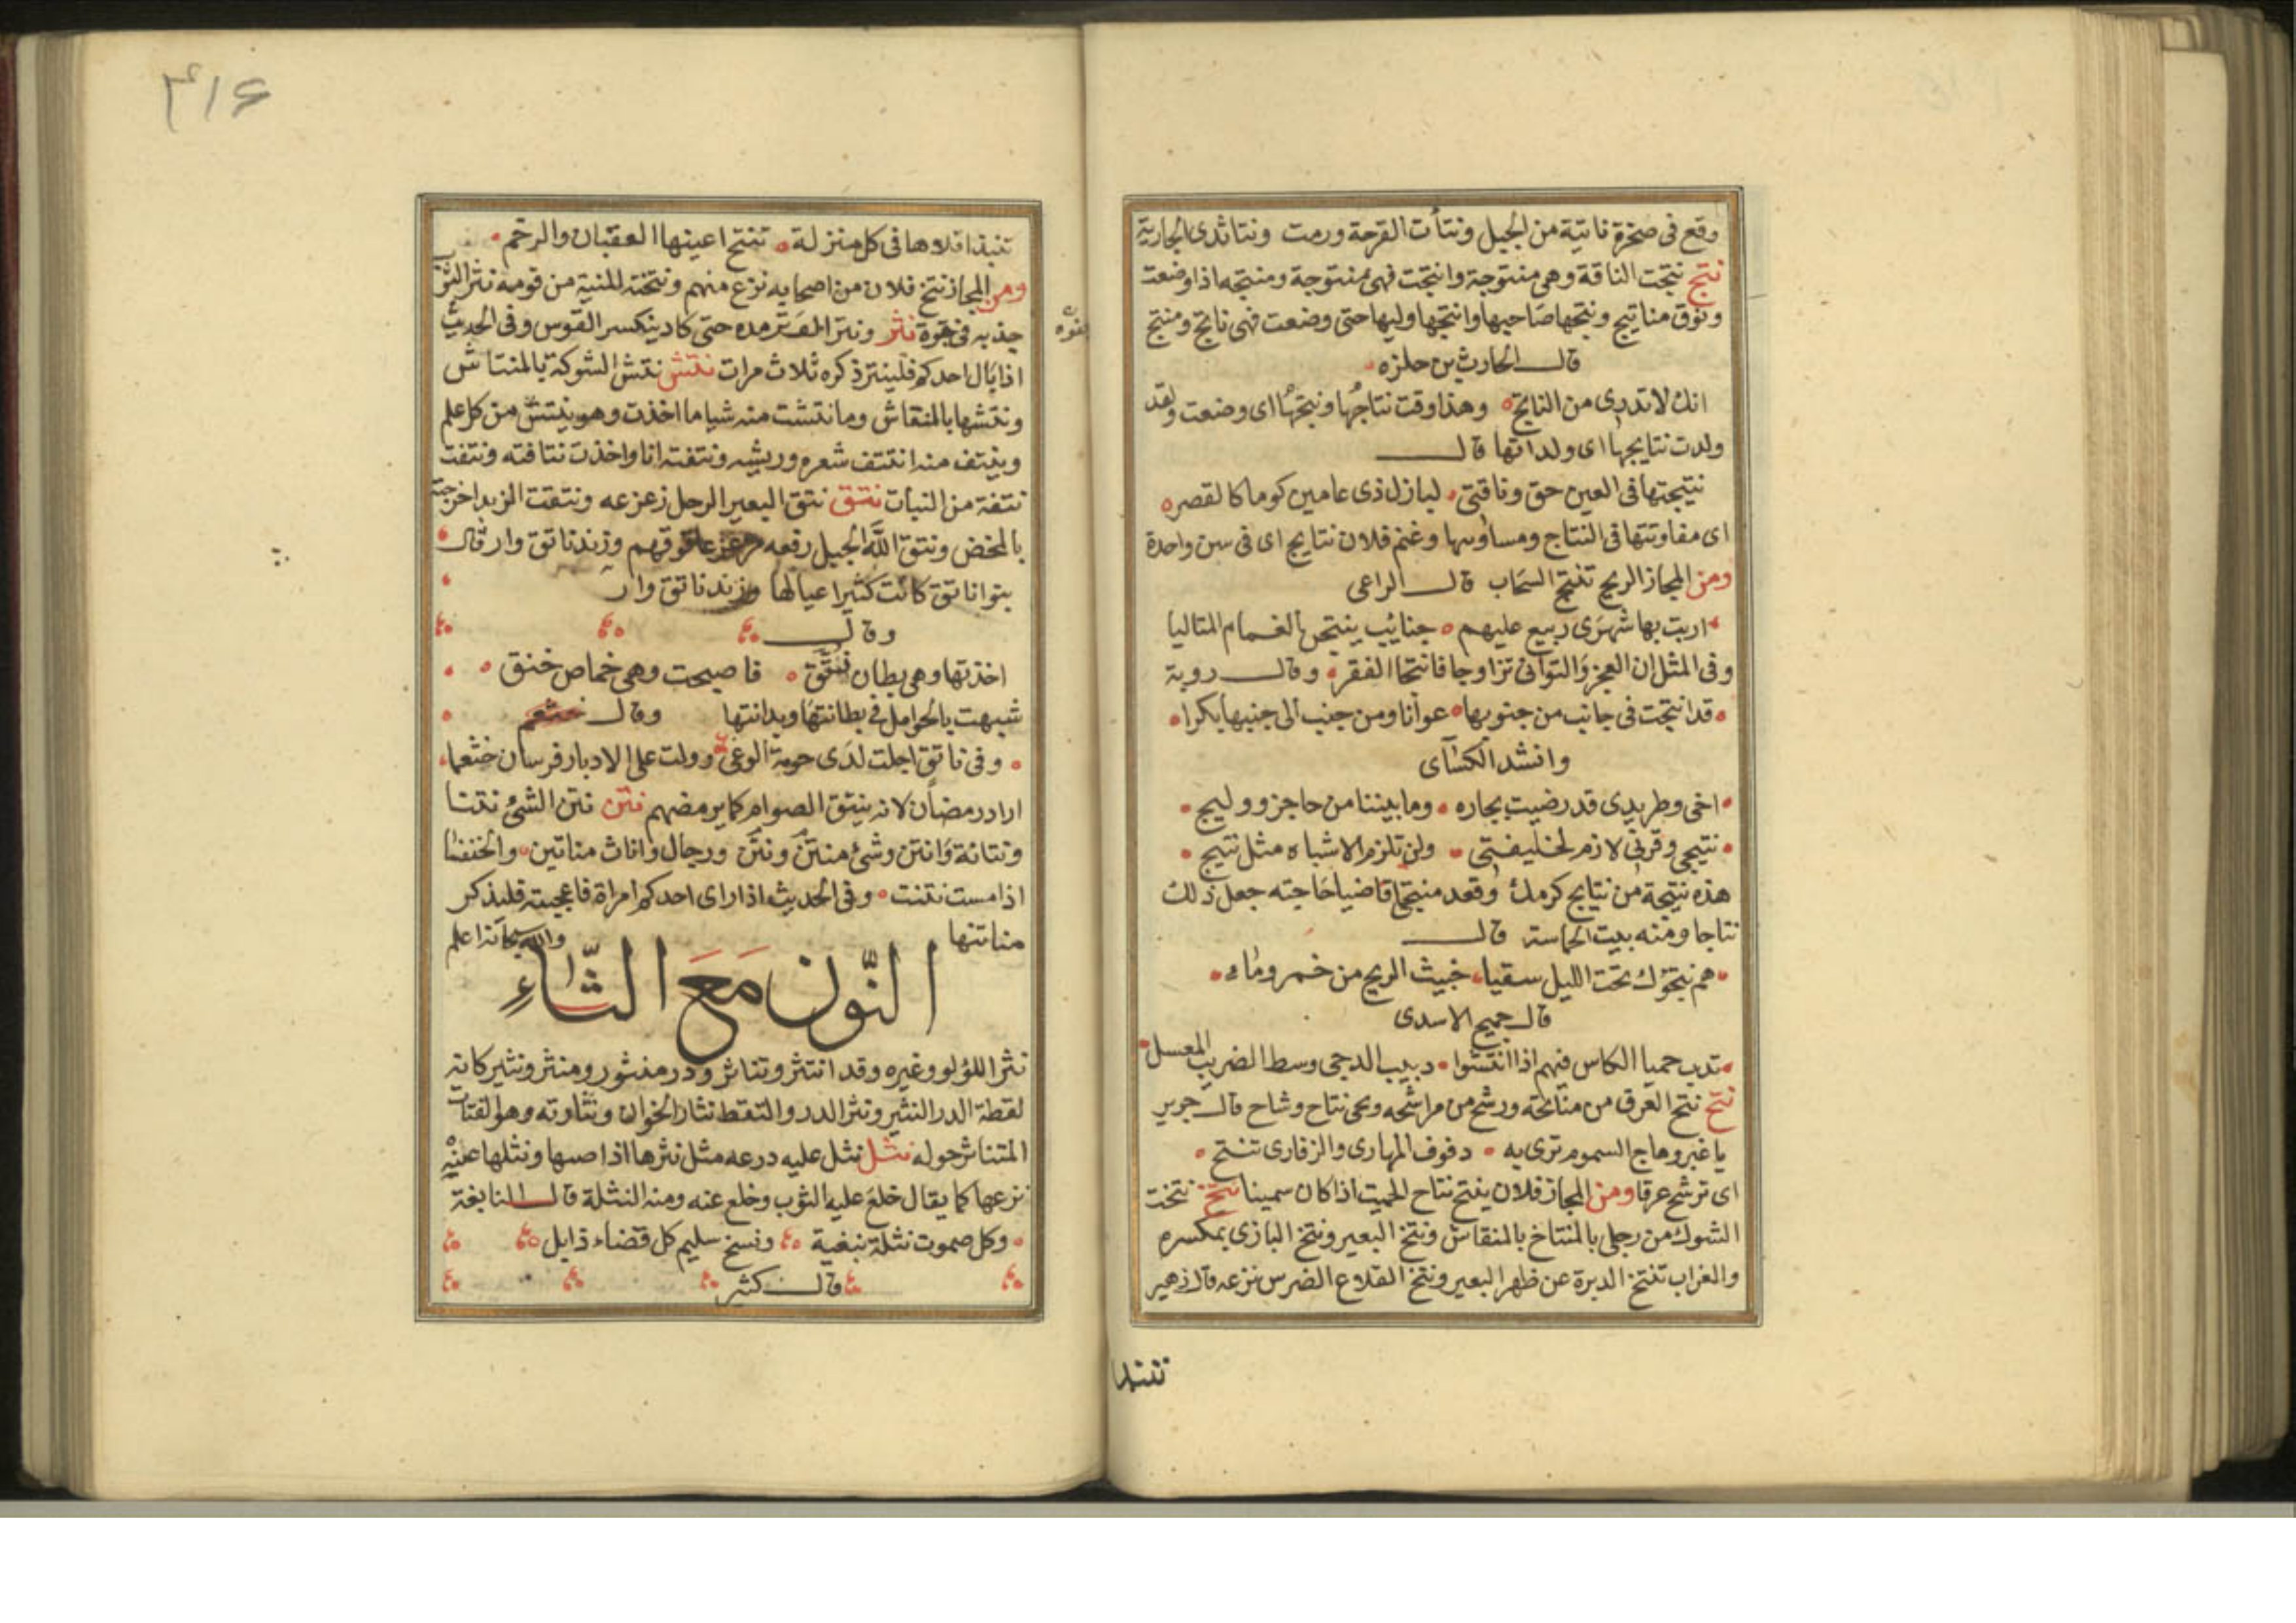 وقع فى صخرة ناتية من الجبل ونتأت القرحة ورمت ونتا ثدى الجارية
نتج نتجت الناقة وهى منتوجة وانتجت فهى منتوجة ومنتجه اذا وضعت
ونوق مناتيج ونتجها صاحبها وانتجها وليها حتى وضعت فهى ناتج ومنتج
قال الحارث بن حلزه
انك لا تدرى من الناتج وهذا وقت نتاجها ونتجها اى وضعت ولقد
ولدت نتايجها اى ولداتها قال
نتيجتها فى العين حق وناقتى لبازل ذى عامين كوما كالقصره
اى مفاوتتها فى النتاج ومساويها وغنم فلان نتايج اى فى سن واحدة
ومن المجاز الريح تنتج السحاب قال الراعى
اربت بها شهرى ربيع عليهم جنايب ينتجن الغمام المتاليا
وفى المثل ان العجز والتوانى تزاوجا فانتجا الفقر وقال روبة
قد انتجت فى جانب من جنوبها عوانا ومن جنب الى جنبها بكرا
وانشد الكسآى
اخى وطريدى قد رضيت بجاره وما بيننا من حاجز ووليج
نتيجى وقرنى لازم لخليفتى ولن تلزم الاشباه مثل نتيج
هذه نتيجة من نتايج كرمك وقعد منتجا قاضيا حاجته جعل ذلك
نتاجا ومنه بيت الحماسة قال
هم نتجوك تحت الليل سقيا خبيث الريح من خمر وماء
قال جميح الاسدى
تدب حميا الكاس فيهم اذا انتشوا دبيب الدجى وسط الضريب المعسل
نتح نتح العرق من مناتحه ورشح من مراشحه ونحى نتاح وشاح قال جرير
ياغبر وهاج السموم ترى به دفوف المهارى والزفارى تنتح
اى ترشح عرقا ومن المجاز فلان ينتح نتاح الحميت اذا كان سمينا نتخ نتخت
الشوك من رجلى بالمنتاخ بالمنقاش ونتخ البعير ونتخ البازى بمكسره
والغراب تنتخ الدبرة عن ظهر البعير ونتخ القلاع الضرس نزعه قال زهير
تنبذ افلاءها فى كل منزلة تنتخ اعينها العقبان والرخم
ومن المجاز نتخ فلان من اصحابه نزع منهم ونتخته المنية من قومه نتر الثوب
جذبه فى قوة نتر ونتر القوس مده حتى كاد ينكسر القوس وفى الحديث
اذا بال احدكم فلينتر ذكره ثلاث مرات نتش نتش الشوكة بالمنتاش
ونتشها بالمنقاش وما نتشت منه شيا ما اخذت وهو ينتش من كل علم
وينتف منه انتتف شعره وريشه ونتفته انا واخذت نتافته ونتفت
نتفة من النبات نتق نتق البعير الرحل زعزعه ونتقت الزبد اخرجته
بالمخض ونتق الله الجبل رفعه فوقهم وزند ناتق وار قال
بنوا ناتق كانت كثيرا عيالها وزند ناتق وار
وقال
اخذتها وهى بطان نتق فاصبحت وهى خماص خنق
شبهت بالحوامل فى بطانتها وبدانتها وقال خثعم
وفى ناتق اجلت لدى حومة الوغى وولت على الادبار فرسان خثعما
اراد رمضان لانه ينتق الصوام كما يرمضهم نتن نتن الشئ نتنا
ونتانة وانتن وشئ منتن ونتن ورجال واناث مناتين والخنفسا
اذا مست نتنت وفى الحديث اذا راى احدكم امراة فاعجبته فليذكر
مناتنها والله سبحانه اعلم
النون مع الثاء
نثر اللؤلو وغيره وقد انتثر وتناثر ودر منثور ومنثر ونثير كانه
لقطة الدر النثير ونثر الدر والتقط نثار الخوان ونثارته وهو الفتات
المتناثر حوله نثل نثل عليه درعه مثل نثرها اذا صبها ونثلها عنه
نزعها كما يقال خلع عليه الثوب وخلع عنه ومنه النثلة قال النابغة
وكل صموت نثلة تبغية ونسج سليم كل قضاء ذايل
قال كثير
تنبذ
۴۱۶